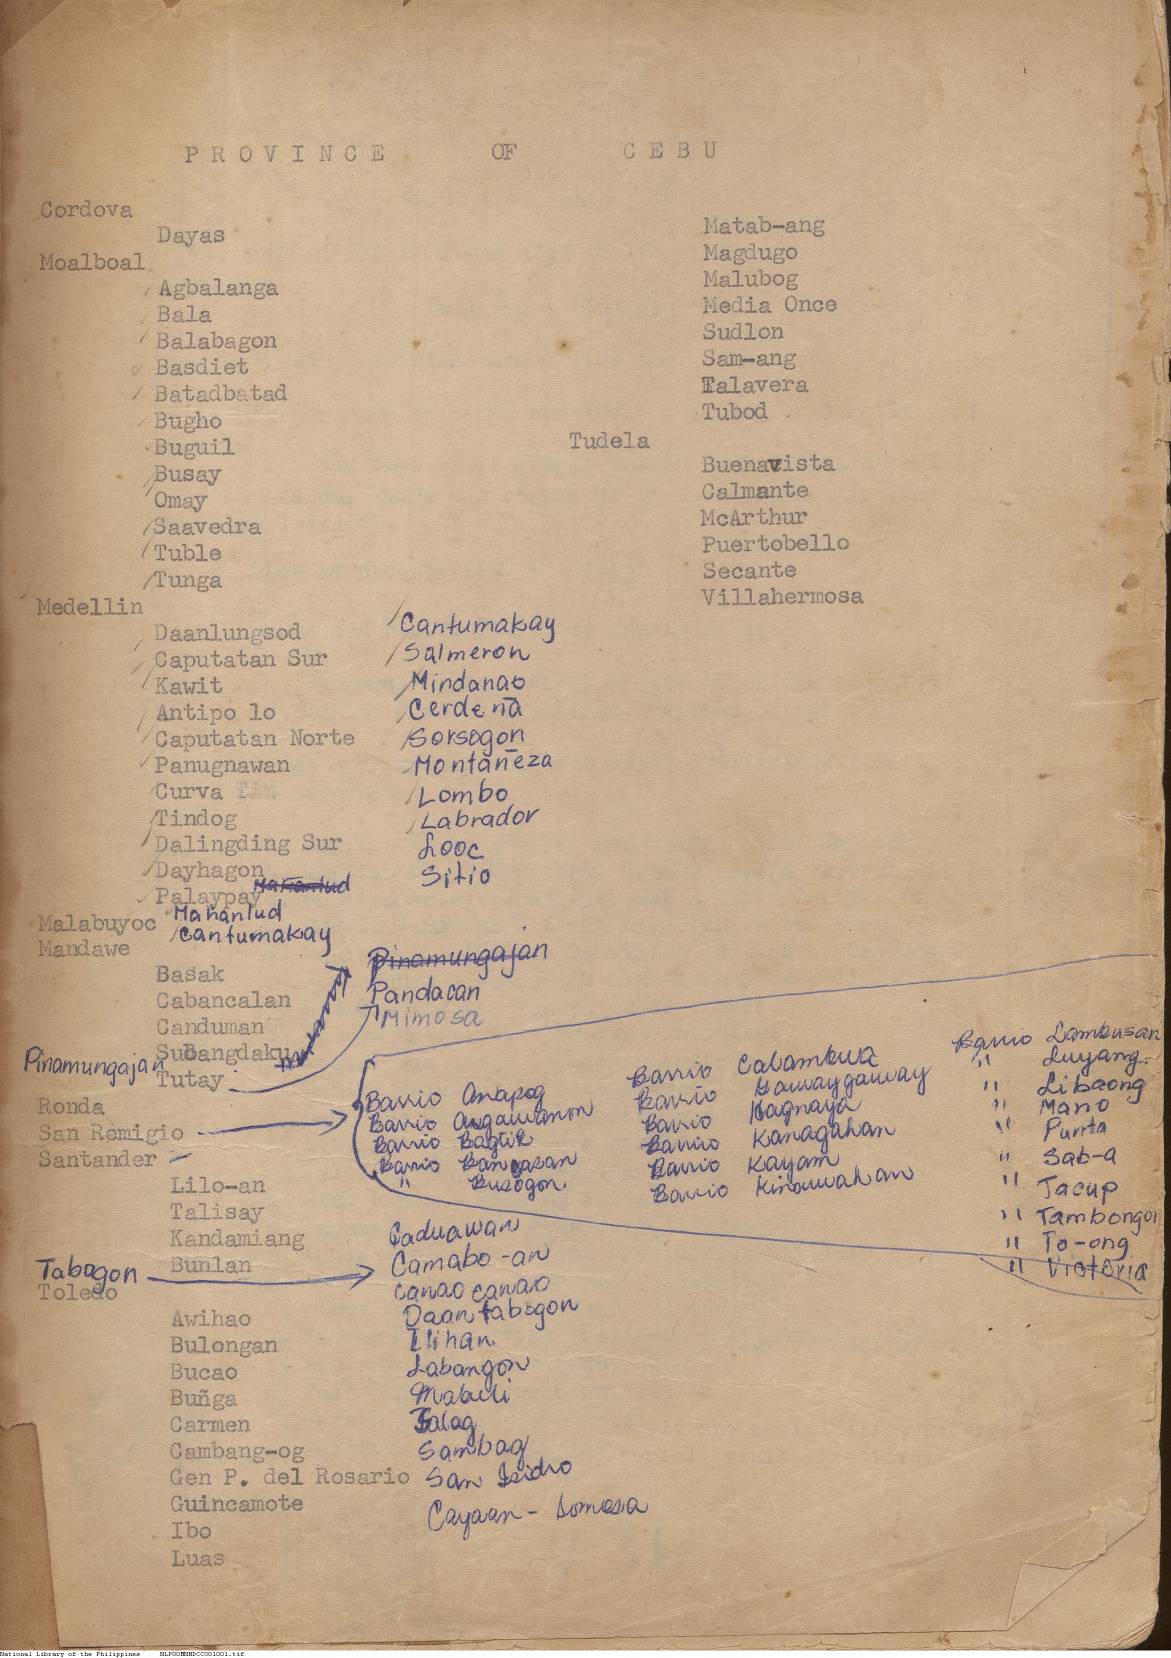 PROVINCE OF CEBU
Cordova
Dayas
Moalboal
Agbalanga
Bala
Balabagon
Basdiet
Batadbatad
Bugho
Buguil
Busay
Omay
Saavedra
Tuble
Tunga
Medellin
Daanlungsod
Caputatan Sur
Kawit
Antipo lo
Caputatan Norte
Panugnawan
Curva
Tindog
Dalingding Sur
Dayhagon
Palaypay
Cantumakay
Salmeron
Mindanao
Cerdeña
Sorsogon
Montañeza
Lombo
Labrador
Looc
Sitio
Mahanlud
Malabuyoc Mahanlud
Cantumakay
Mandawe
Basak
Cabancalan
Canduman
Subangdaku
Tutay
Pinamungajan
Pinamungajan
Pandacan
Mimosa
Ronda
San Remigio
Barrio Anapog
Barrio Argawanon
Barrio Bagtik
Barrio Bancasan
" Busogon
Barrio Calambua
Barrio Gawaygaway
Barrio Hagnaya
Barrio Kanagahan
Barrio Kayam
Barrio Kinawahan
Barrio Lambusan
" Luyang
" Libaong
" Mano
" Punta
" Sab-a
" Tacup
" Tambongon
" To-ong
" Victoria
Santander
Lilo-an
Talisay
Kandamiang
Bunlan
Tabogon
Caduawan
Camabo-an
Canao canao
Daan tabogon
Ilihan
Labangon
Mabuli
Salag
Sambag
San Isidro
Cayaan - Somosa
Toledo
Awihao
Bulongan
Bucao
Buñga
Carmen
Cambang-og
Gen P. del Rosario
Guincamote
Ibo
Luas
Matab-ang
Magdugo
Malubog
Media Once
Sudlon
Sam-ang
Talavera
Tubod
Tudela
Buenavista
Calmante
McArthur
Puertobello
Secante
Villahermosa
National Library of the Philippines